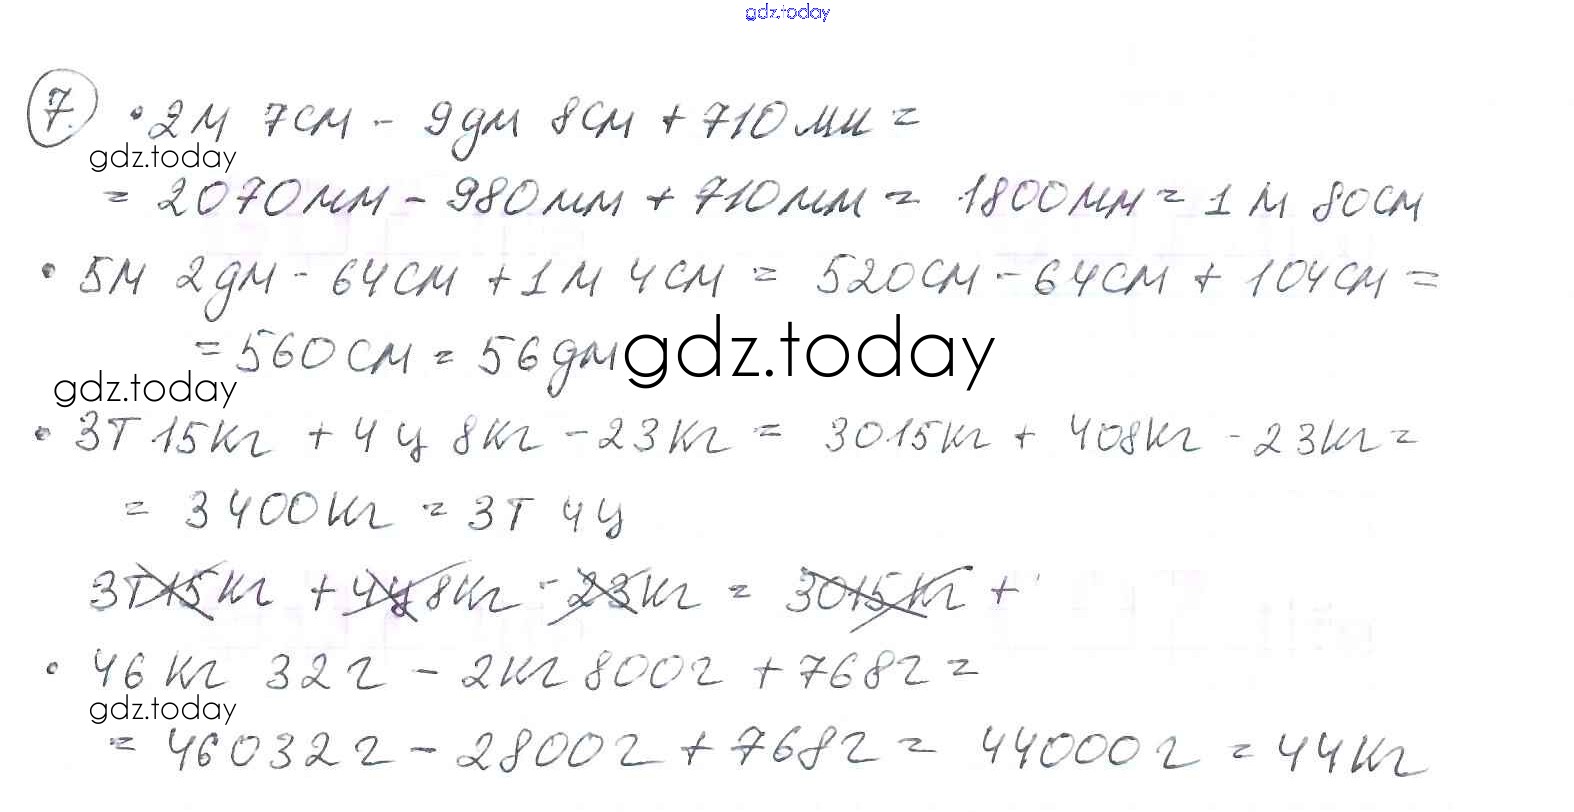 gdz.today
7. • 2м 7см - 9дм 8см + 710мм =
gdz.today
= 2070мм - 980мм + 710мм = 1800мм = 1м 80см
• 5м 2дм - 64см + 1м 4см = 520см - 64см + 104см =
= 560см = 56дм
gdz.today
gdz.today
• 3т 15кг + 4ц 8кг - 23кг = 3015кг + 408кг - 23кг =
= 3400кг = 3т 4ц
3т 15кг + 4ц 8кг - 23кг = 3015кг +
• 46кг 32г - 2кг 800г + 768г =
gdz.today
= 46032г - 2800г + 768г = 44000г = 44кг